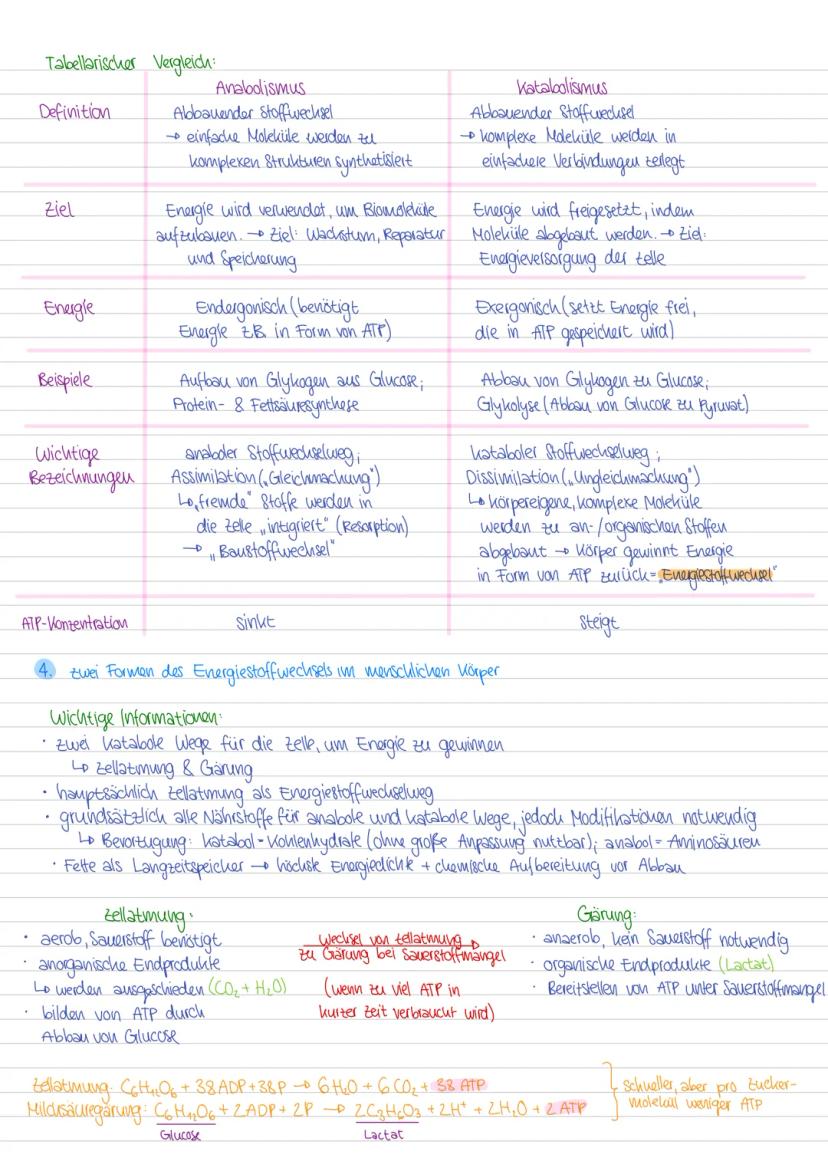 Tabellarischer Vergleich:
Anabolismus
Katabolismus
Definition
Abbauender Stoffwechsel
→ einfache Moleküle werden zu
komplexen Strukturen synthetisiert
Abbauender Stoffwechsel
→ komplexe Moleküle werden in
einfachere Verbindungen zerlegt
Ziel
Energie wird verwendet, um Biomoleküle
aufzubauen. → Ziel: Wachstum, Reparatur
und Speicherung
Energie wird freigesetzt, indem
Moleküle abgebaut werden. → Ziel:
Energieversorgung der Zelle
Energie
Endergonisch (benötigt
Energie z.B. in Form von ATP)
Exergonisch (setzt Energie frei,
die in ATP gespeichert wird)
Beispiele
Aufbau von Glykogen aus Glucose;
Protein- & Fettsäuresynthese
Abbau von Glykogen zu Glucose;
Glykolyse (Abbau von Glucose zu Pyruvat)
Wichtige
Bezeichnungen
anaboler Stoffwechselweg;
Assimilation („Gleichmachung")
↳ „fremde" Stoffe werden in
die Zelle „intigriert" (Resorption)
→ „Baustoffwechsel"
kataboler Stoffwechselweg;
Dissimilation („Ungleichmachung")
↳ körpereigene, komplexe Moleküle
werden zu an-/organischen Stoffen
abgebaut → Körper gewinnt Energie
in Form von ATP zurück = „Energiestoffwechsel"
ATP-Konzentration
sinkt
steigt
4. Zwei Formen des Energiestoffwechsels im menschlichen Körper
Wichtige Informationen:
· zwei katabole Wege für die Zelle, um Energie zu gewinnen
↳ Zellatmung & Gärung
· hauptsächlich Zellatmung als Energiestoffwechselweg
· grundsätzlich alle Nährstoffe für anabole und katabole Wege, jedoch Modifikationen notwendig
↳ Bevorzugung: katabol = Kohlenhydrate (ohne große Anpassung nutzbar); anabol = Aminosäuren
· Fette als Langzeitspeicher → höchste Energiedichte + chemische Aufbereitung vor Abbau
Zellatmung:
· aerob, Sauerstoff benötigt
· anorganische Endprodukte
↳ werden ausgeschieden (CO₂ + H₂O)
· bilden von ATP durch
Abbau von Glucose
Wechsel von Zellatmung
zu Gärung bei Sauerstoffmangel
(wenn zu viel ATP in
kurzer Zeit verbraucht wird)
Gärung:
· anaerob, kein Sauerstoff notwendig
· organische Endprodukte (Lactat)
· Bereitstellen von ATP unter Sauerstoffmangel
Zellatmung: C₆H₁₂O₆ + 38 ADP + 38 P → 6 H₂O + 6 CO₂ + 38 ATP
Milchsäuregärung: C₆H₁₂O₆ + 2 ADP + 2 P → 2 C₃H₆O₃ + 2H⁺ + 2H₂O + 2 ATP
Glucose
Lactat
schneller, aber pro Zucker-
molekül weniger ATP